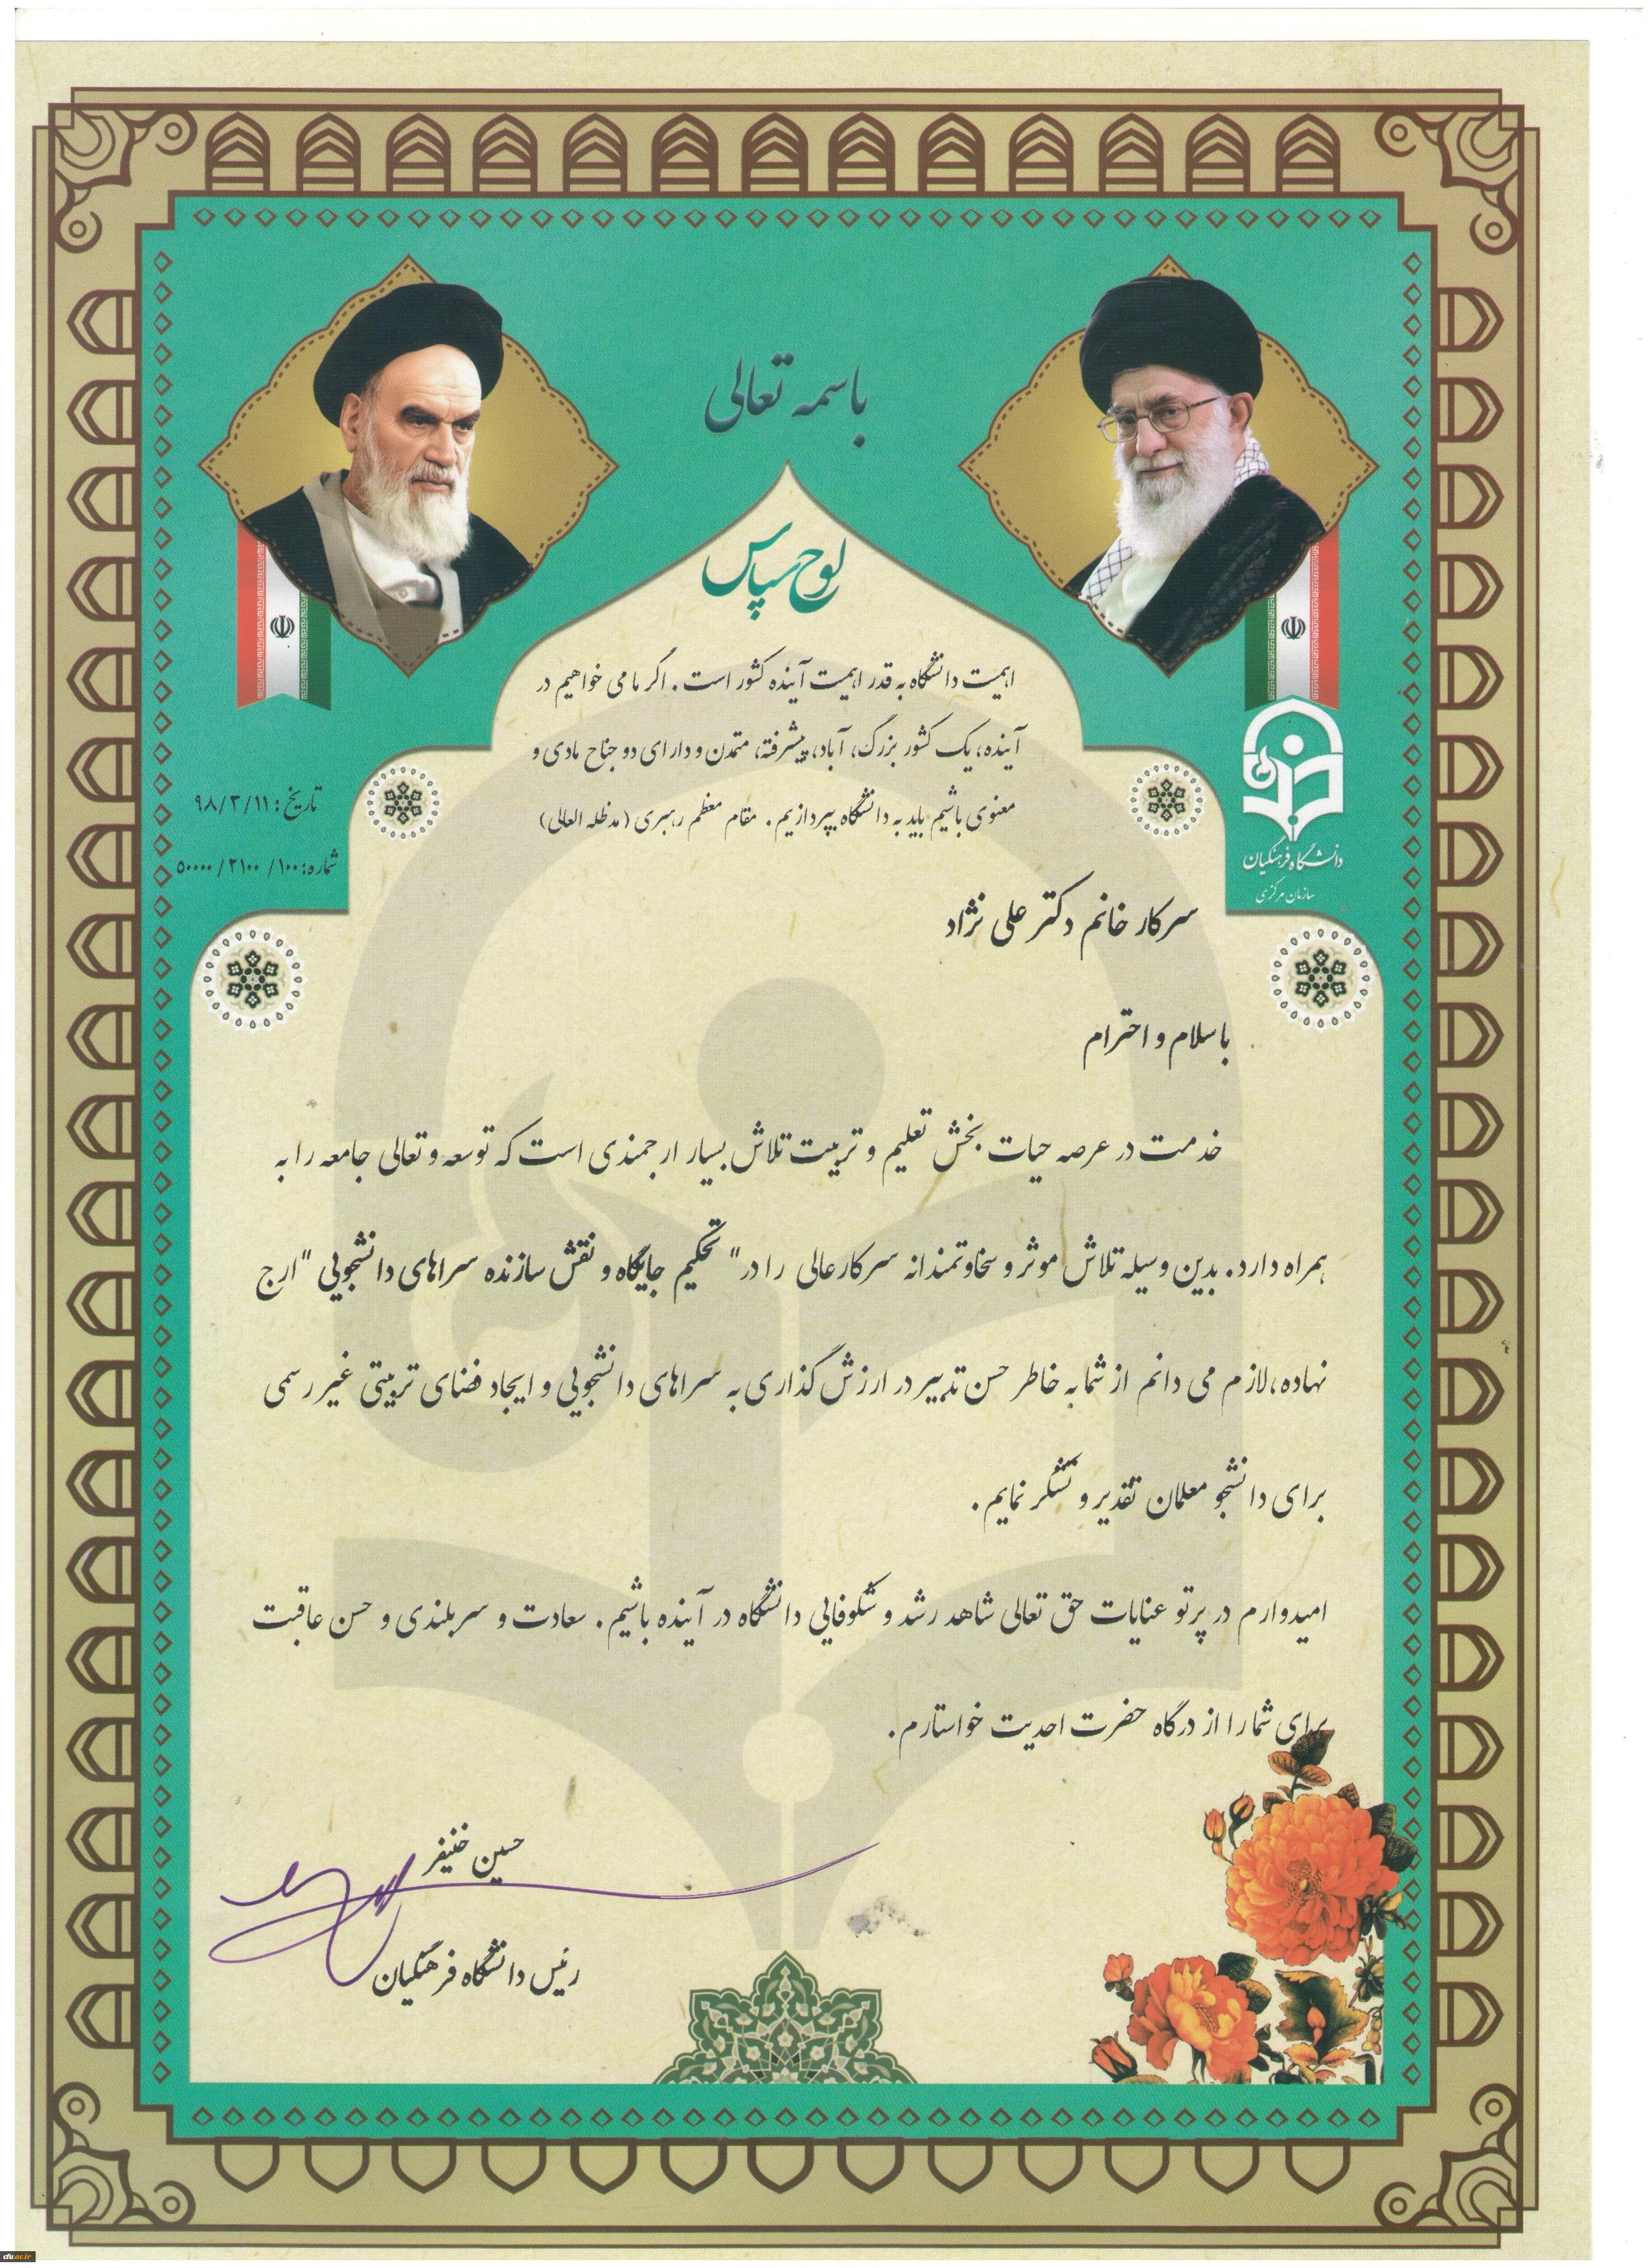 باسمه تعالی
لوح سپاس
اهمیت دانشگاه به قدر اهمیت آینده کشور است. اگر ما می خواهیم در
آینده، یک کشور بزرگ، آباد، پیشرفته، متمدن و دارای دو جناح مادی و
معنوی باشیم باید به دانشگاه بپردازیم. مقام معظم رهبری (مدظله العالی)
تاریخ: ۹۸/۳/۱۱
شماره: ۵۰۰۰۰/۲۱۰۰/۱۰۰
دانشگاه فرهنگیان
سازمان مرکزی
سرکار خانم دکتر علی نژاد
با سلام و احترام
خدمت در عرصه حیات بخش تعلیم و تربیت تلاش بسیار ارجمندی است که توسعه و تعالی جامعه را به
همراه دارد. بدین وسیله تلاش موثر و سخاوتمندانه سرکارعالی را در "تحکیم جایگاه و نقش سازنده سراهای دانشجویی" ارج
نهاده، لازم می دانم از شما به خاطر حسن تدبیر در ارزش گذاری به سراهای دانشجویی و ایجاد فضای تربیتی غیر رسمی
برای دانشجو معلمان تقدیر و تشکر نمایم.
امیدوارم در پرتو عنایات حق تعالی شاهد رشد و شکوفایی دانشگاه در آینده باشیم. سعادت و سربلندی و حسن عاقبت
برای شما را از درگاه حضرت احدیت خواستارم.
حسین خنیفر
رئیس دانشگاه فرهنگیان
cfu.ac.ir